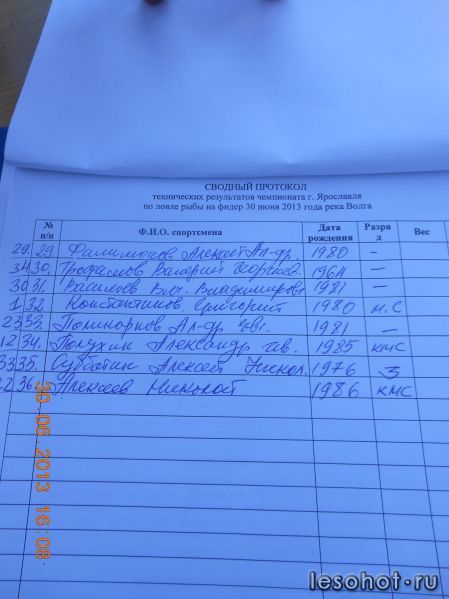 СВОДНЫЙ ПРОТОКОЛ
технических результатов чемпионата г. Ярославля
по ловле рыбы на фидер 30 июня 2013 года река Волга
№ п/п Ф.И.О. спортсмена Дата рождения Разряд Вес
29. 29. Филимонов Алексей Ал-др. 1980 –
34 30. Трофимов Валерий Георгиев. 1964 –
30 31. Васильев Владимирович 1981 –
1 32. Константинов Григорий 1980 м.с
23 33. Поликарпов Ал-др 1981 –
12 34. Полухин Александр 1985 кмс
33 35. Субботин Алексей Никол. 1976 3
22 36. Алексеев Николай 1986 кмс
30.06.2013 16:08
lesohot.ru